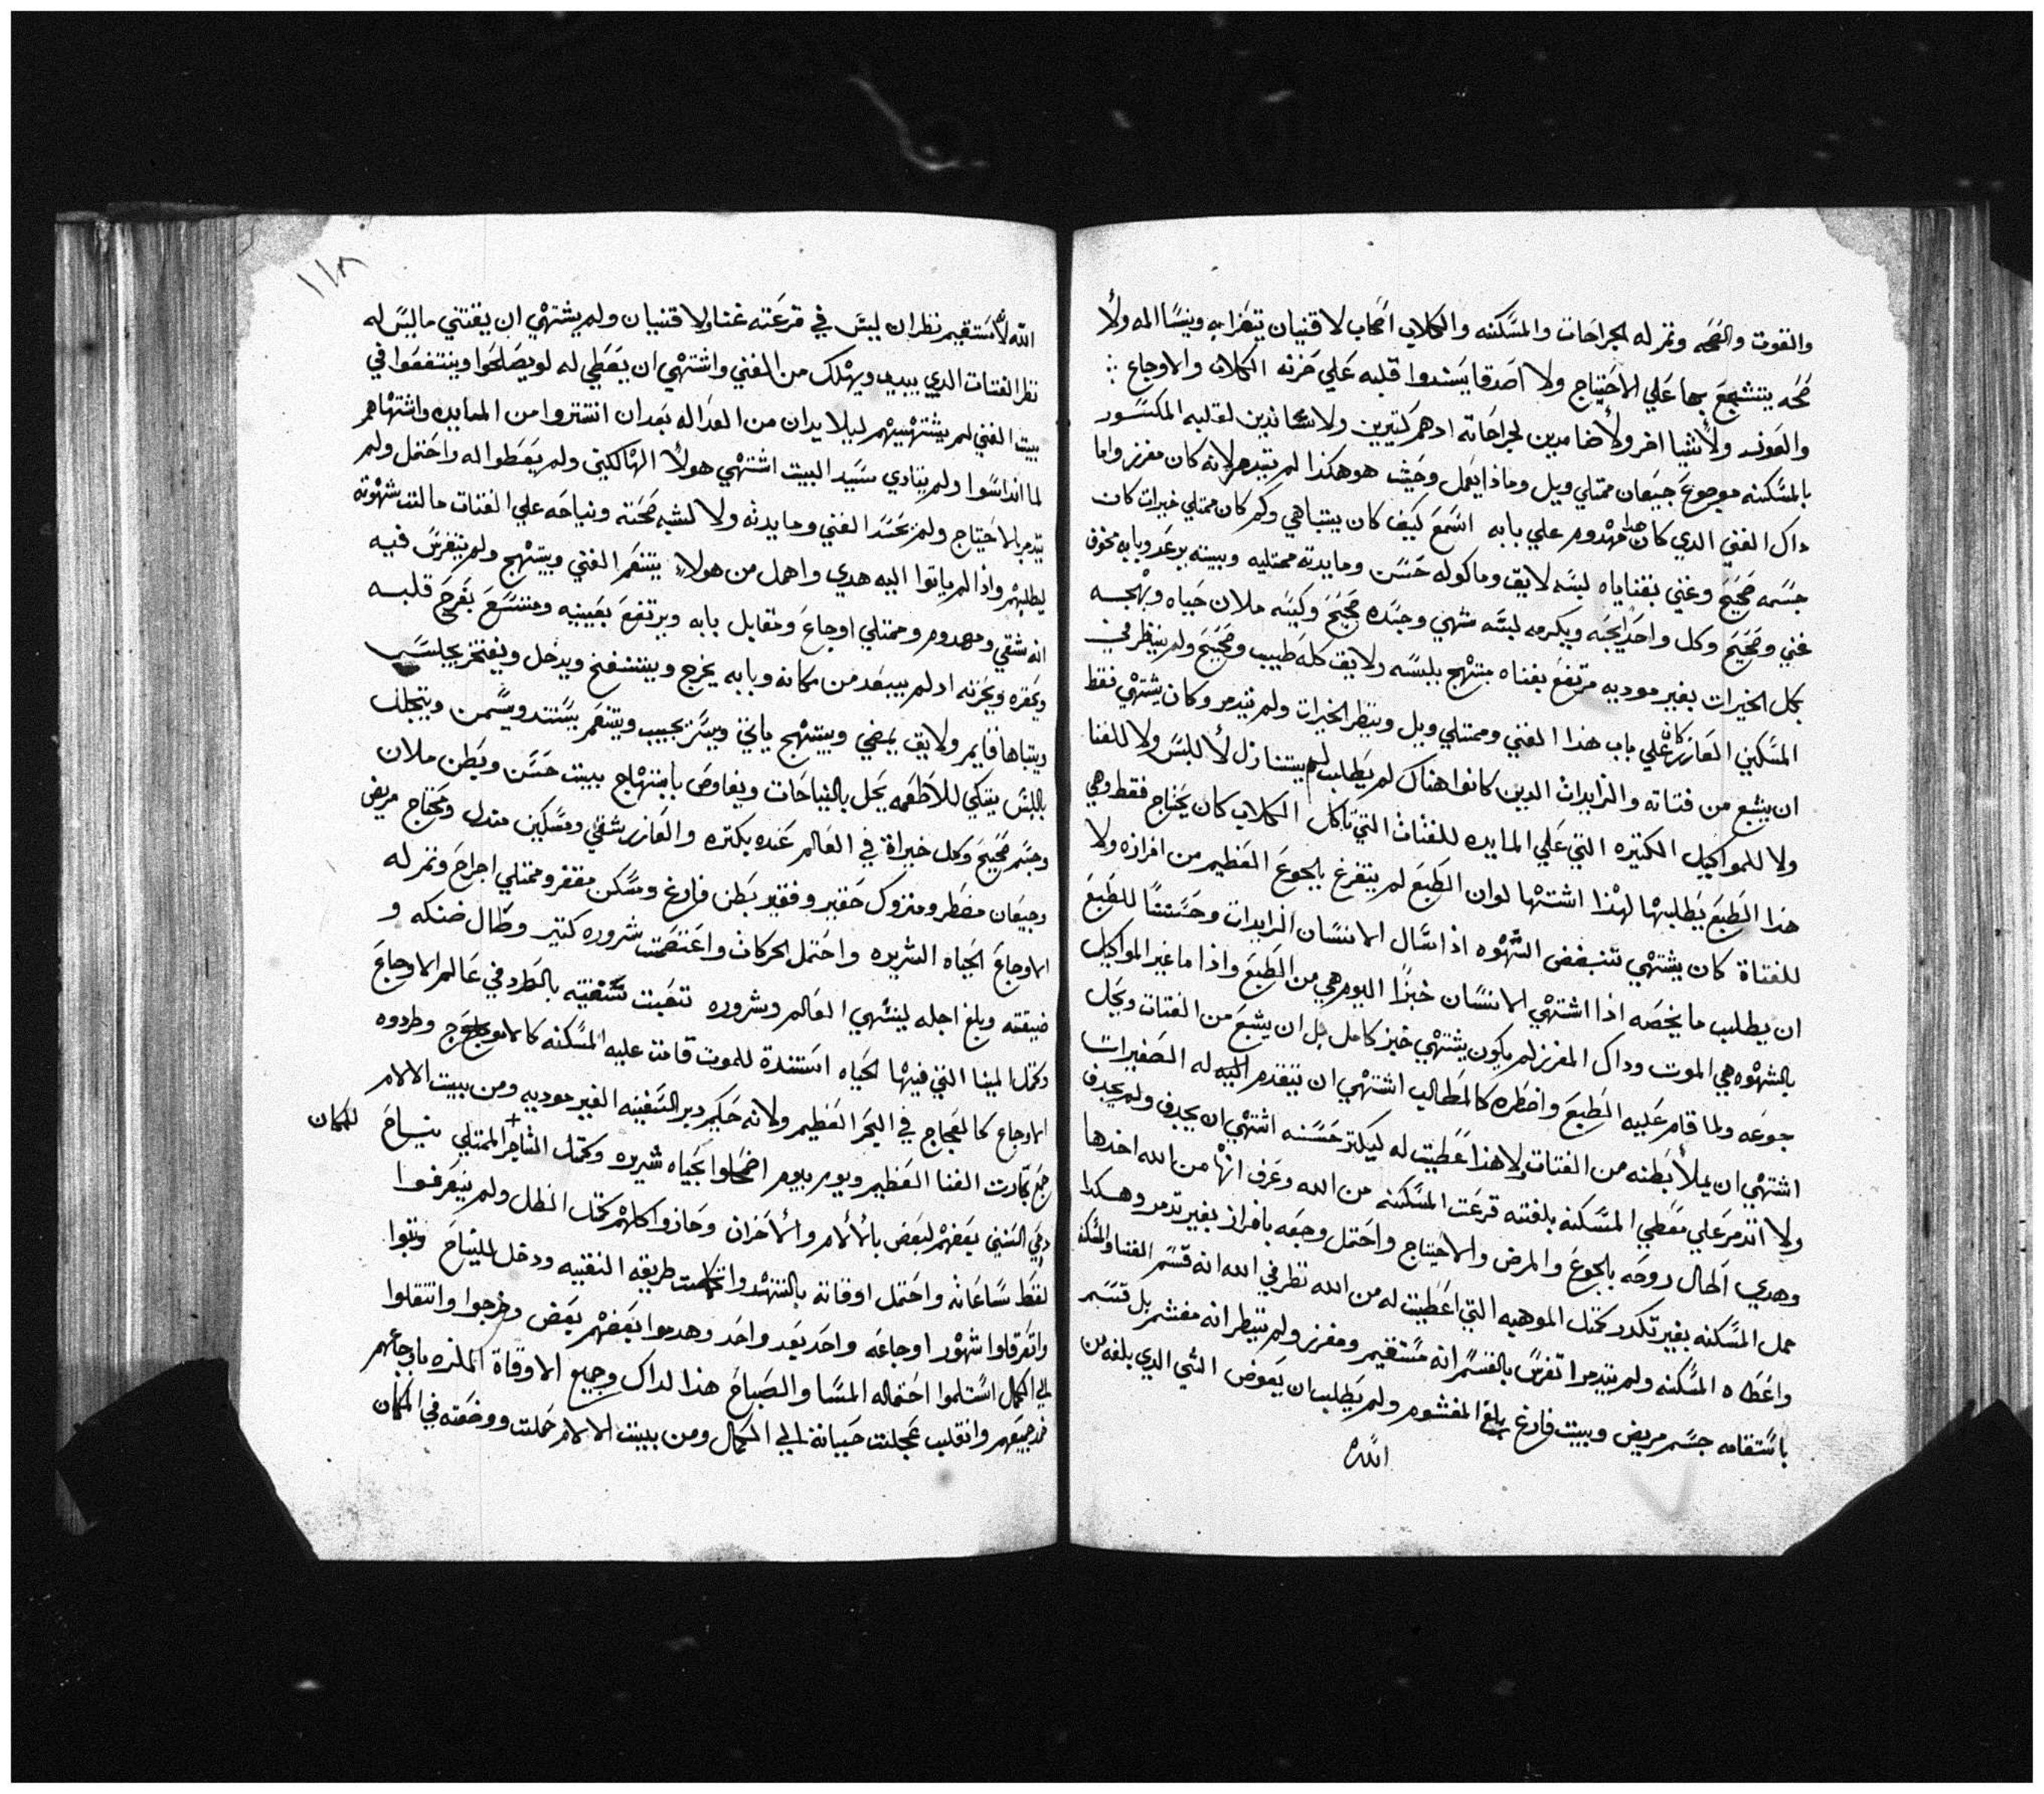 والقوت والصحه وتمر له الجراحات والمسكنه والكلاب اصحاب لا قنيان يتعزا به وينسا المه ولا
صحه يتشجع بها علي الاحتياج ولا اصدقا يسندوا قلبه علي حزنه الكلاب والاوجاع
والعوز ولا اشيا اخر ولا ضامدين لجراحاته ادهم كتيرين ولا لقلبه المكسور
بالمسكنه موجوع جيعان ممتلي ويل وماذا يعمل وحيث هو هكذا لم يتدمر لانه كان مفرز واما
داك الغني الدي كان هدا مهدوم علي بابه اسمع كيف كان يتباهي وكم كان ممتلي خيرات كان
جسمه صحيح وغني بقناياه لبسه لايق وماكوله حسن ومايدته ممتليه وبيته برعد وبابه مخوف
غني وصحيح وكل واحد يحبه ويكرمه لبسه شهي وجسده صحيح وكيسه ملان حياه وبهجه
بكل الخيرات بغير موديه مرتفع بغناه مبتهج بلبسه ولايق كله طبيب وصحيح ولم ينظر في
المسكين العازر كان علي باب هذا الغني وممتلي ويل وينظر الخيرات ولم يتدمر وكان يشتهي فقط
ان يشبع من فتاته والزايدات الدين كانوا هناك لم يطلب لم يتنازل لا للبس ولا للغنا
ولا للمواكيل الكتيره التي علي المايده للفتات التي تاكل الكلاب كان يحتاج فقط وهي
هذا الطبع يطلبها لهذا اشتهاها لوان الطبع لم يتفرغ بالجوع العظيم من افرازه ولا
للفتاة كان يشتهي تنبغض الشهوه اذا سال الانسان الزايدات وحسنًا للطبع
ان يطلب ما يخصه اذا اشتهي الانسان خبزًا اليوم هي من الطبع واذا ما غير المواكيل
بالشهوه هي الموت وداك المفرز لم يكون يشتهي خبز كامل بل ان يشبع من الفتات ويحل
جوعه ولما قام عليه الطبع واضطره كالمطالب اشتهي ان يتقدم اليه له الصغيرات
اشتهي ان يملأ بطنه من الفتات ولا هذا اعطيت له ليكتر حسنه اشتهي ان يجدف ولم يجدف
ولا اتدمر علي معطي المسكنه بلغته قرعت المسكنه من الله وعرف انها من الله اخدها
وهدي اطال روحه بالجوع والمرض والاحتياج واحتمل وجعه بافراز بغير تدمر وهكدا
حمل المسكنه بغير تكدر كتل الموهبه التي اعطيت له من الله نظر في الله انه قسم الغنا والمسكنه
واعطاه المسكنه ولم يتدمر اتفرس بالقسم انه مستقيم ومفرز ولم ينظر انه مغشم بل قسم
باستقامه جسم مريض وبيت فارغ بلغ المغشوم ولم يطلب ان يعوض الشي الدي بلغه من
الله
١١٨
الله المستقيم نظر ان ليس في قرعته غنا ولا قنيان ولم يشتهي ان يقتني ما ليس له
نظر الفتات الدي يبيد ويهلك من الغني واشتهي ان يعطي له لو يصلحوا وينتفعوا في
بيت الغني لم يشتهيهم ليلا يدان من العداله بعد ان انتتروا من المايده واشتهاهم
لما انداسوا ولم ينادي سيد البيت اشتهي هولاء الهالكين ولم يعطوا له واحتمل ولم
يتدمر بالاحتياج ولم يحسد الغني ومايدته ولا لشبه صحته ونياحه علي الفتات مالت شهوته
ليطلبهم واذا لم ياتوا اليه هدي واهمل من هولاء يتنعم الغني ويبتهج ولم يتفرس فيه
انه شقي ومهدوم وممتلي اوجاع ومقابل بابه ويرتفع بعينيه ومتسع بفرح قلبه
ويحقره ويحزنه اد لم يبعد من مكانه وبابه يخرج وينتفخ ويدخل ويفتخر يجلس
ويتباها قايم ولايق يمضي ويبتهج ياتي ويسر يحبب ويتنعم يستند ويسمن ويتجلل
باللبس يتكي للاطعمه يحل بالنياحات ويفاوض بابتهاج بيت حسن وبطن ملان
وجسم صحيح وكل خيراة في العالم عنده بكتره والعازر شقي ومسكين متدل ومحتاج مريض
وجيعان مضطر ومتروك حقير وفقير بطن فارغ ومسكن مقفر وممتلي اجراح وتمر له
الاوجاع الحياه الشريره واحتمل الحركات واعتصمت شروره كتير وطال ضنكه و
ضيقته وبلغ اجله لينتهي العالم وشروره تتعبت سفينه بالطرد في عالم الاوجاع
وكمل المينا التي فيها الحياه استندة للموت قامت عليه المسكنه كالامواج وطردوه
الاوجاع كالعجاج في البحر العظيم ولانه حكيم دبر السفينه الغير موديه ومن بيت الالام
جمع تجارت الغنا العظيم ويوم بيوم اضحلوا بحياه شريره وكمل التاجر الممتلي نياح + للمكان
وفي السنين بعضهم لبعض بالالام والاحزان وحازوا كلهم كتل الظل ولم يتعرفوا
لقط ساعاته واحتمل اوقاته بالتنهد وانكملت طريقه النقيه ودخل للنياح وتبوا
واتفرقوا شهور اوجاعه واحد بعد واحد وهدموا بعضهم بعض وخرجوا وانتقلوا
الي الكمال استلموا احتماله المسا والصباح هذا لداك وجميع الاوقاة الملزه باوجاعهم
ضد جميعهم وانقلب عجلت حياته الي الكمال ومن بيت الالام حملت ووضعته في المكان